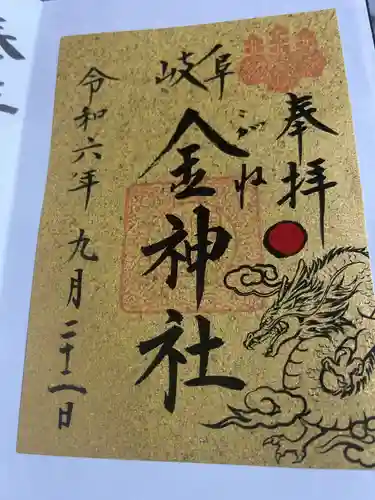 奉拝
岐阜
金神社
こがね
令和六年九月二十一日